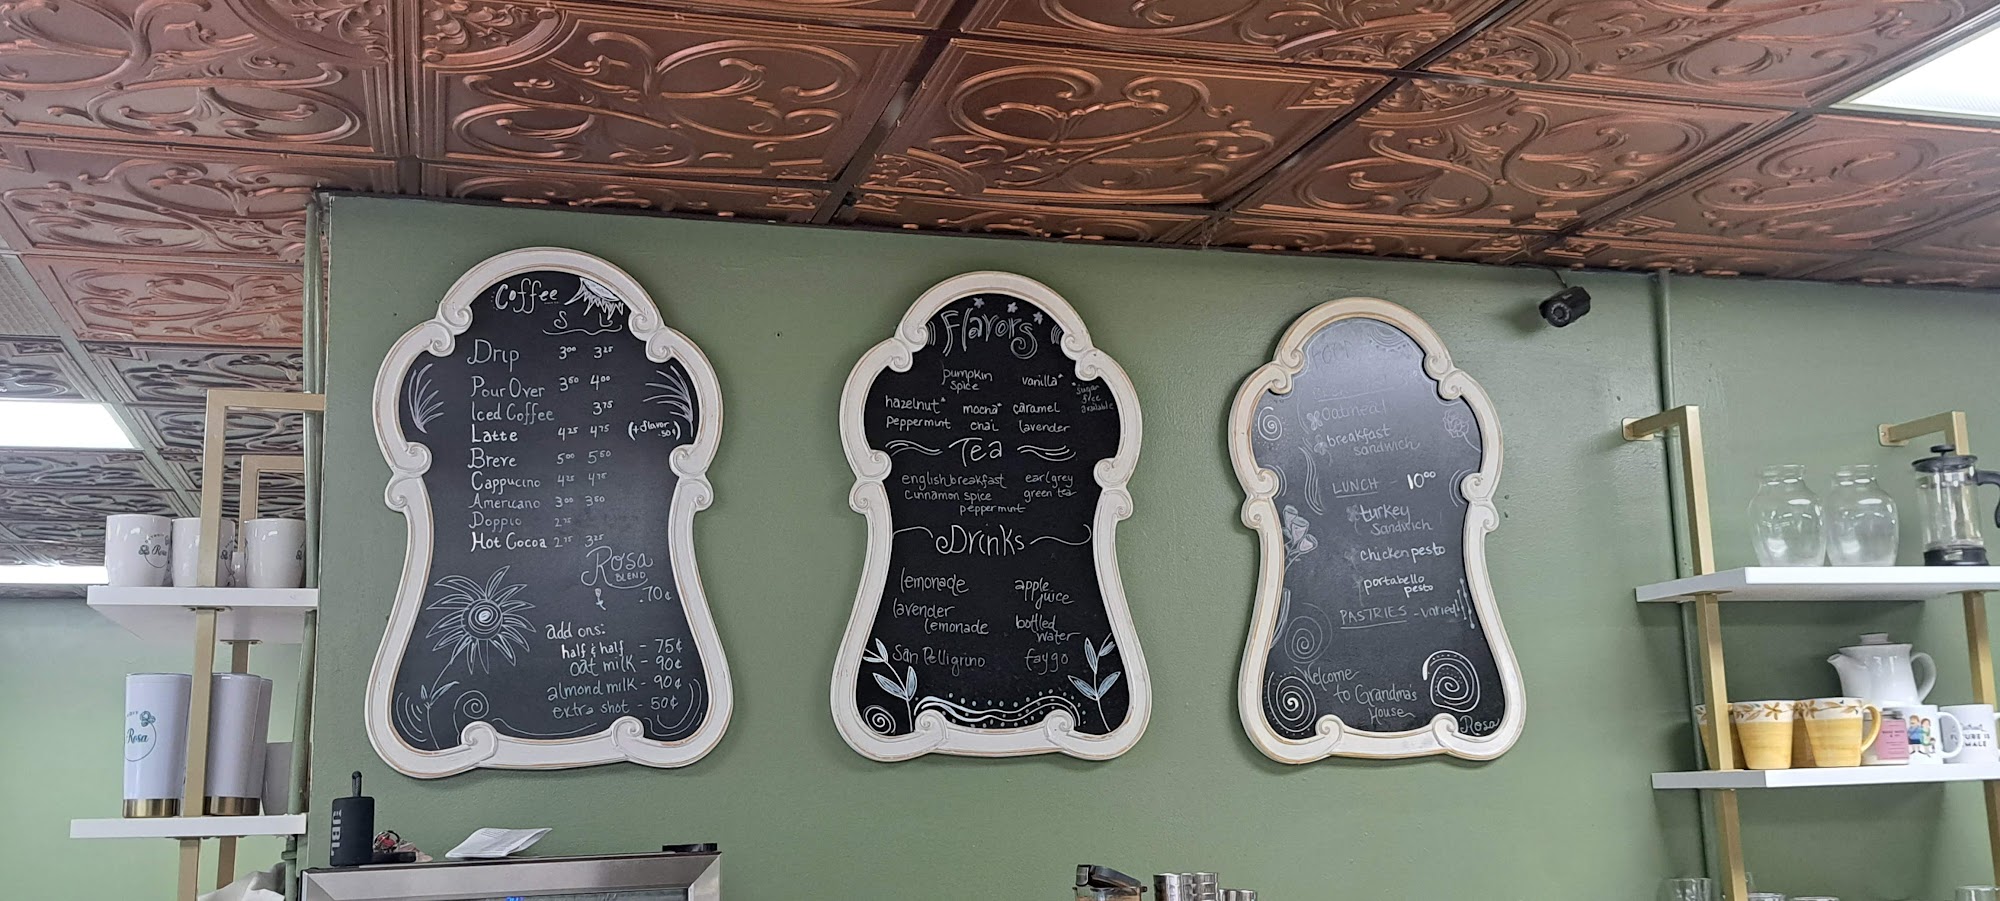 Coffee
S L
Drip 3.00 3.25
Pour Over 3.50 4.00
Iced Coffee 3.75
Latte 4.25 4.75 (+flavor .50¢)
Breve 5.00 5.50
Cappucino 4.25 4.75
Americano 3.00 3.50
Doppio 2.75
Hot Cocoa 2.75 3.25
Rosa
BLEND
.70¢
add ons:
half & half - 75¢
oat milk - 90¢
almond milk - 90¢
extra shot - 50¢
Flavors
pumpkin
spice
vanilla*
*sugar
free
available
hazelnut* mocha* caramel
peppermint chai lavender
Tea
english breakfast earl grey
cinnamon spice green tea
peppermint
Drinks
lemonade
apple
juice
lavender
lemonade
bottled
water
San Pelligrino
faygo
oatmeal
breakfast
sandwich
LUNCH - 10.00
turkey
sandwich
chicken pesto
portabello
pesto
PASTRIES - varied!
Welcome
to Grandma's
House
Rosa
Rosa
Rosa
JBL